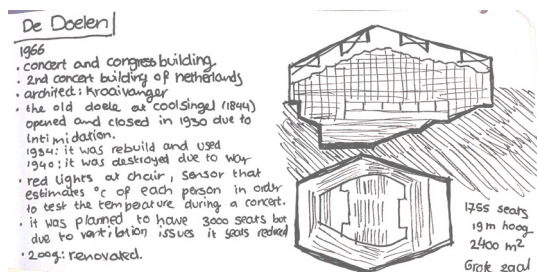 De Doelen
1966
• concert and congressbuilding
• 2nd concert building of netherlands
• architect: Kraaivanger
• the old doele at coolsingel (1844)
opened and closed in 1930 due to
intimidation.
1934: it was rebuild and used
1940: it was destroyed due to war
• red lights at chair, sensor that
estimates °c of each person in order
to test the temperature during a concert.
• it was planned to have 3000 seats but
due to ventilation issues it seats reduced
• 2009: renovated.
1755 seats
19m hoog
2400 m²
Grote zaal